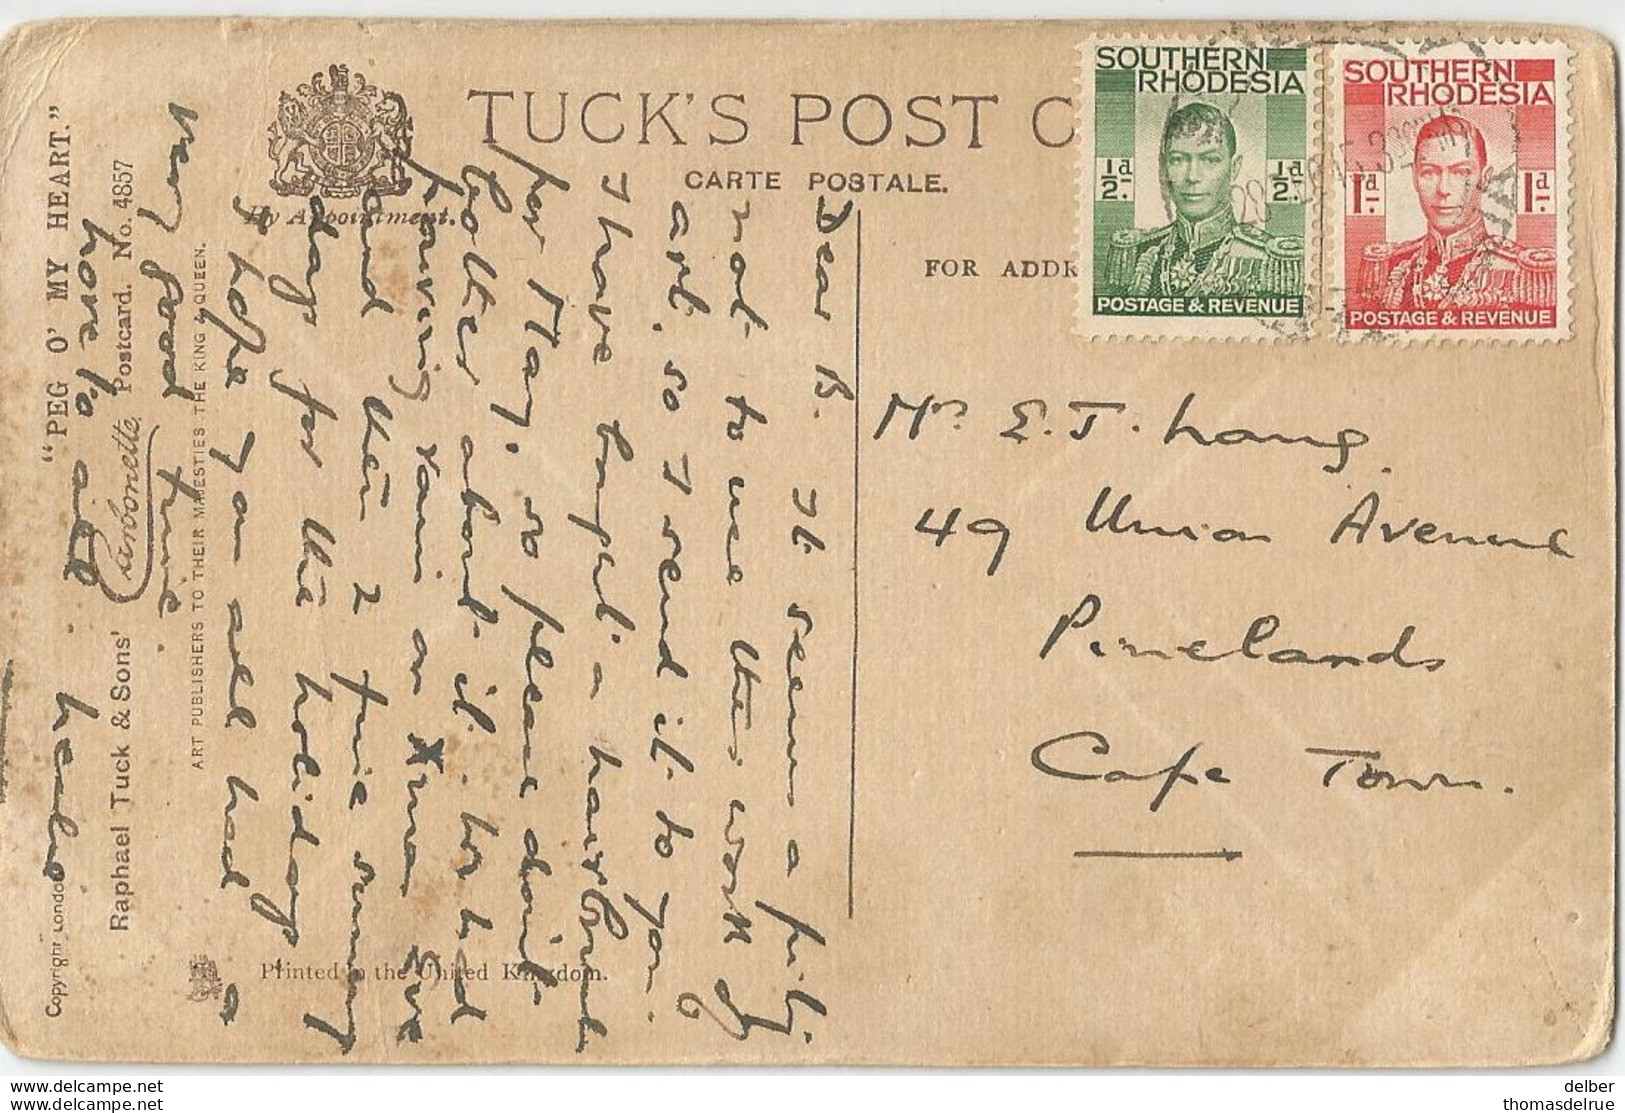 TUCK'S POST C
CARTE POSTALE.
FOR ADDR
By Appointment.
SOUTHERN
RHODESIA
½d. ½d.
POSTAGE & REVENUE
SOUTHERN
RHODESIA
1d. 1d.
POSTAGE & REVENUE
Dear B. It seems a pity
not to use this work of
art, so I send it to you.
I have bought a hairbrush
for May, so please don't
bother about it. We had
pouring rain on Xmas Eve
and then 2 fine sunny
days for the holiday
I hope you all had a
very good time.
Love to all.
Mrs E. J. Lang.
49 Union Avenue
Pinelands
Cape Town.
"PEG O' MY HEART."
Carbonette Postcard. No. 4857
Raphael Tuck & Sons'
ART PUBLISHERS TO THEIR MAJESTIES THE KING & QUEEN.
Copyright London
Printed in the United Kingdom.
www.delcampe.net
delber
thomasdelrue